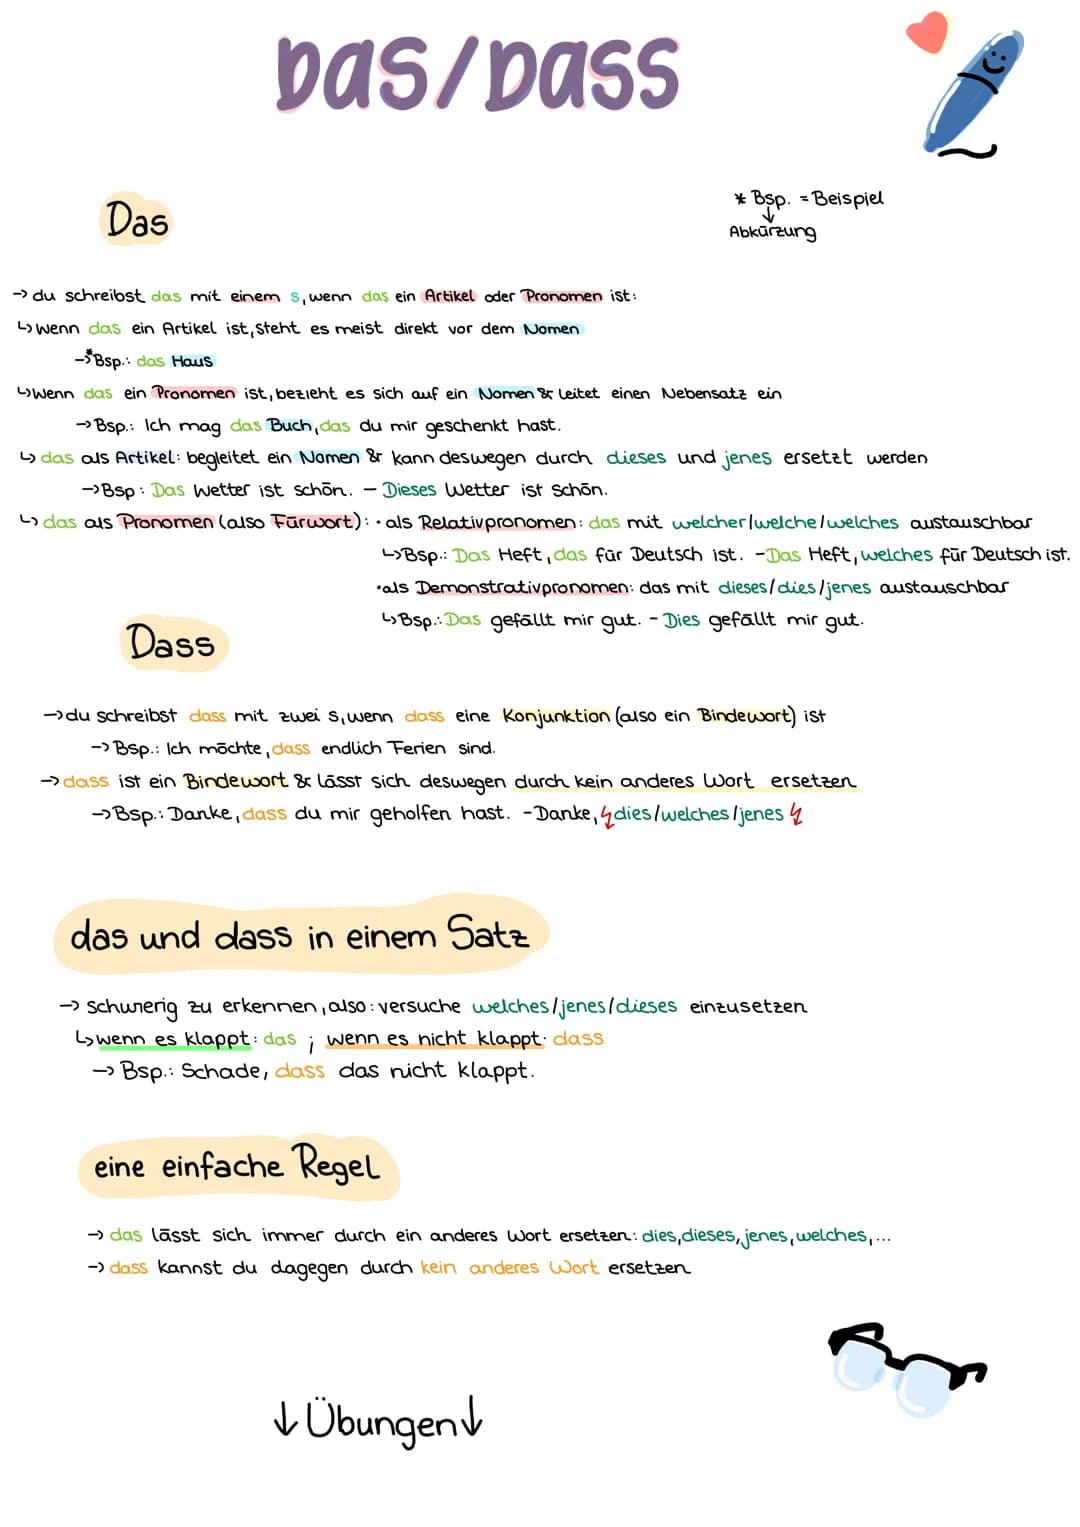 Das/Dass
* Bsp. = Beispiel
↓
Abkürzung
Das
→ du schreibst das mit einem s, wenn das ein Artikel oder Pronomen ist:
↳ wenn das ein Artikel ist, steht es meist direkt vor dem Nomen
→* Bsp.: das Haus
↳ Wenn das ein Pronomen ist, bezieht es sich auf ein Nomen & leitet einen Nebensatz ein
→ Bsp.: Ich mag das Buch, das du mir geschenkt hast.
↳ das als Artikel: begleitet ein Nomen & kann deswegen durch dieses und jenes ersetzt werden
→ Bsp: Das Wetter ist schön. – Dieses Wetter ist schön.
↳ das als Pronomen (also Fürwort): • als Relativpronomen: das mit welcher/welche/welches austauschbar
↳ Bsp.: Das Heft, das für Deutsch ist. - Das Heft, welches für Deutsch ist.
• als Demonstrativpronomen: das mit dieses/dies/jenes austauschbar
↳ Bsp.: Das gefällt mir gut. - Dies gefällt mir gut.
Dass
→ du schreibst dass mit zwei s, wenn dass eine Konjunktion (also ein Bindewort) ist
→ Bsp.: Ich möchte, dass endlich Ferien sind.
→ dass ist ein Bindewort & lässt sich deswegen durch kein anderes Wort ersetzen
→ Bsp.: Danke, dass du mir geholfen hast. - Danke, ↯ dies/welches/jenes ↯
das und dass in einem Satz
→ schwierig zu erkennen, also: versuche welches/jenes/dieses einzusetzen
↳ wenn es klappt: das ; wenn es nicht klappt: dass
→ Bsp.: Schade, dass das nicht klappt.
eine einfache Regel
→ das lässt sich immer durch ein anderes Wort ersetzen: dies, dieses, jenes, welches, ...
→ dass kannst du dagegen durch kein anderes Wort ersetzen
↓ Übungen ↓